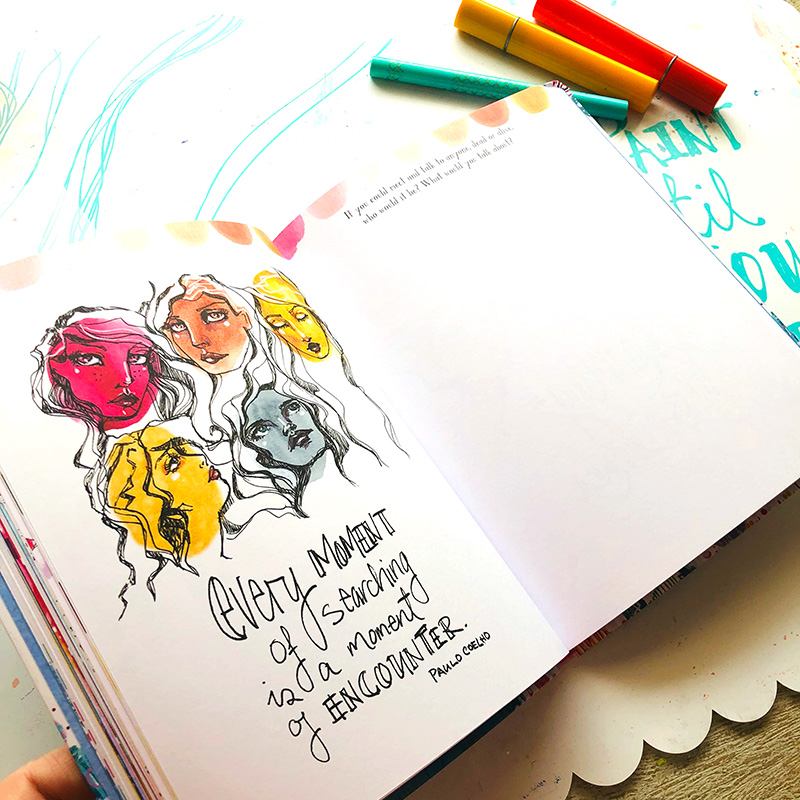 every MOMENT
of searching
is a moment
of ENCOUNTER.
PAULO COELHO
If you could meet and talk to anyone, dead or alive,
who would it be? What would you talk about?
PAINT
til
YOU